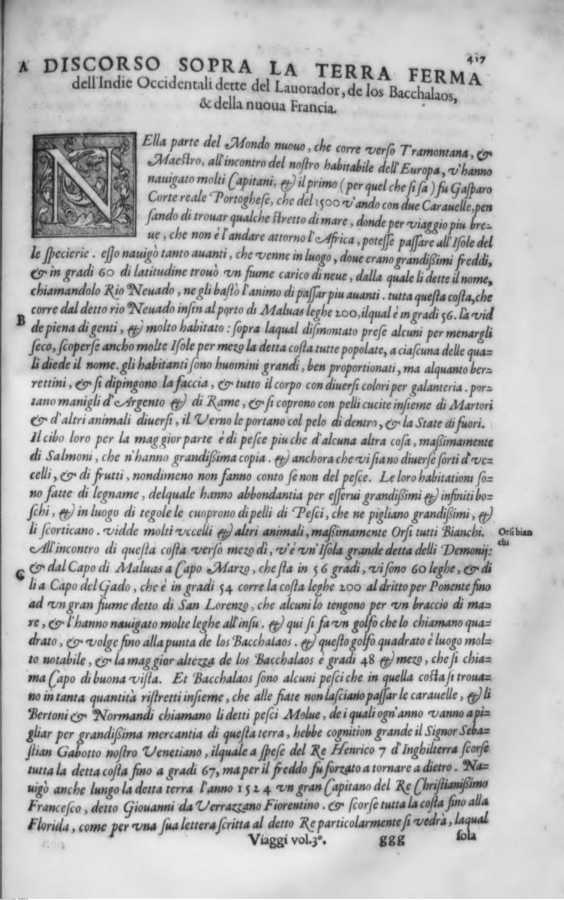 417
A DISCORSO SOPRA LA TERRA FERMA
dell'Indie Occidentali dette del Lauorador, de los Bacchalaos,
& della nuoua Francia.
NElla parte del Mondo nuouo, che corre verso Tramontana, &
Maestro, all'incontro del nostro habitabile dell'Europa, v'hanno
nauigato molti Capitani, & il primo (per quel che si sa) fu Gasparo
Corte reale Portoghese, che del 1500 v'andò con due Carauelle, pen
sando di trouar qualche stretto di mare, donde per viaggio piu bre-
ue, che non è l'andare attorno l'Africa, potesse passare all'Isole del
le specierie. esso nauigò tanto auanti, che venne in luogo, doue erano grandißimi freddi,
& in gradi 60 di latitudine trouò vn fiume carico di neue, dalla quale li dette il nome,
chiamandolo Rio Neuado, ne gli bastò l'animo di passar piu auanti. tutta questa costa, che
corre dal detto rio Neuado insin al porto di Maluas leghe 200, ilqual è in gradi 56. la vid
B de piena di genti, & molto habitato: sopra laqual dismontato prese alcuni per menargli
seco, scoperse ancho molte Isole per mezo la detta costa tutte popolate, a ciascuna delle qua-
li diede il nome. gli habitanti sono huomini grandi, ben proportionati, ma alquanto ber-
rettini, & si dipingono la faccia, & tutto il corpo con diuersi colori per galanteria. por-
tano manigli d'Argento & di Rame, & si coprono con pelli cucite insieme di Martori
& d'altri animali diuersi, il Verno le portano col pelo di dentro, & la State di fuori.
Il cibo loro per la maggior parte è di pesce piu che d'alcuna altra cosa, maßimamente
di Salmoni, che n'hanno grandißima copia. & anchora che vi siano diuerse sorti d'vc-
celli, & di frutti, nondimeno non fanno conto se non del pesce. Le loro habitationi so-
no fatte di legname, delquale hanno abbondantia per esserui grandißimi & infiniti bo-
schi, & in luogo di tegole le cuoprono di pelli di Pesci, che ne pigliano grandißimi, &
li scorticano. vidde molti vccelli & altri animali, maßimamente Orsi tutti Bianchi.
Orsi bian
chi
All'incontro di questa costa verso mezo dì, v'è vn'Isola grande detta delli Demonij:
C & dal Capo di Maluas a Capo Marzo, che sta in 56 gradi, vi sono 60 leghe, & di
li a Capo del Gado, che è in gradi 54 corre la costa leghe 200 al dritto per Ponente fino
ad vn gran fiume detto di San Lorenzo, che alcuni lo tengono per vn braccio di ma-
re, & l'hanno nauigato molte leghe all'insu. & qui si fa vn golfo che lo chiamano qua-
drato, & volge fino alla punta de los Bacchalaos. & questo golfo quadrato è luogo mol-
to notabile, & la maggior altezza de los Bacchalaos è gradi 48 & mezo, che si chia-
ma Capo di buona vista. Et Bacchalaos sono alcuni pesci che in quella costa si troua-
no in tanta quantità ristretti insieme, che alle fiate non lasciano passar le carauelle, & li
Bertoni & Normandi chiamano li detti pesci Molue, de i quali ogn'anno vanno a pi-
gliar per grandißima mercantia di questa terra, hebbe cognition grande il Signor Seba-
stian Gabotto nostro Venetiano, ilquale a spese del Re Henrico 7 d'Inghilterra scorse
tutta la detta costa fino a gradi 67, ma per il freddo fu forzato a tornare a dietro. Na-
uigò anche lungo la detta terra l'anno 1524 vn gran Capitano del Re Christianißimo
Francesco, detto Giouanni da Verrazzano Fiorentino. & scorse tutta la costa fino alla
Florida, come per vna sua lettera scritta al detto Re particolarmente si vedrà, laqual
Viaggi vol.3°. ggg sola